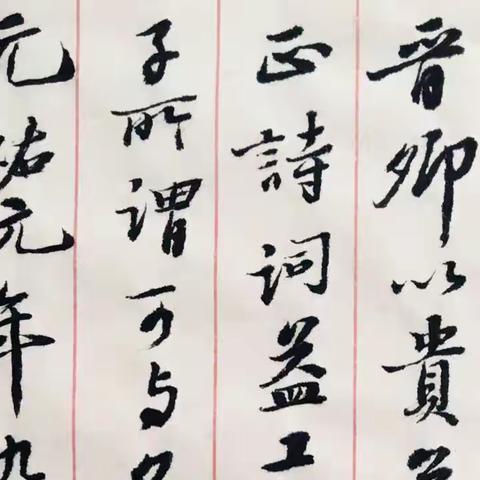 晋卿以貴
正詩詞益工
子所謂可与
元祐元年九